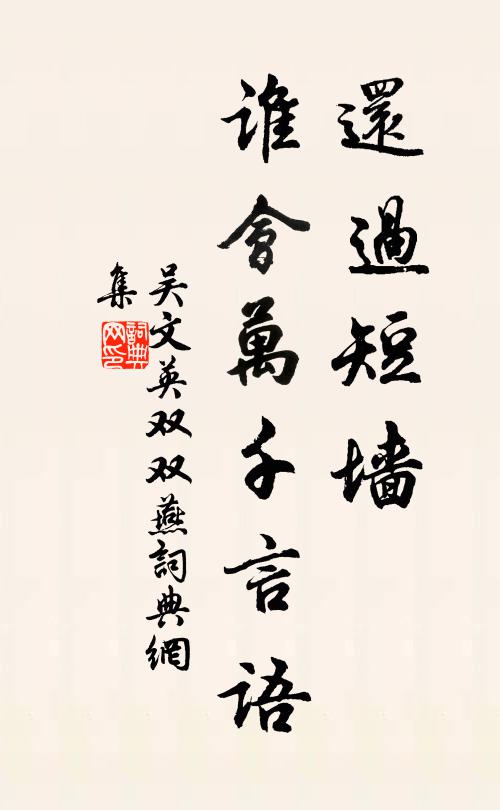 還過短墻
誰會萬千言語
吴文英双双燕詞典網
集
詞典网印